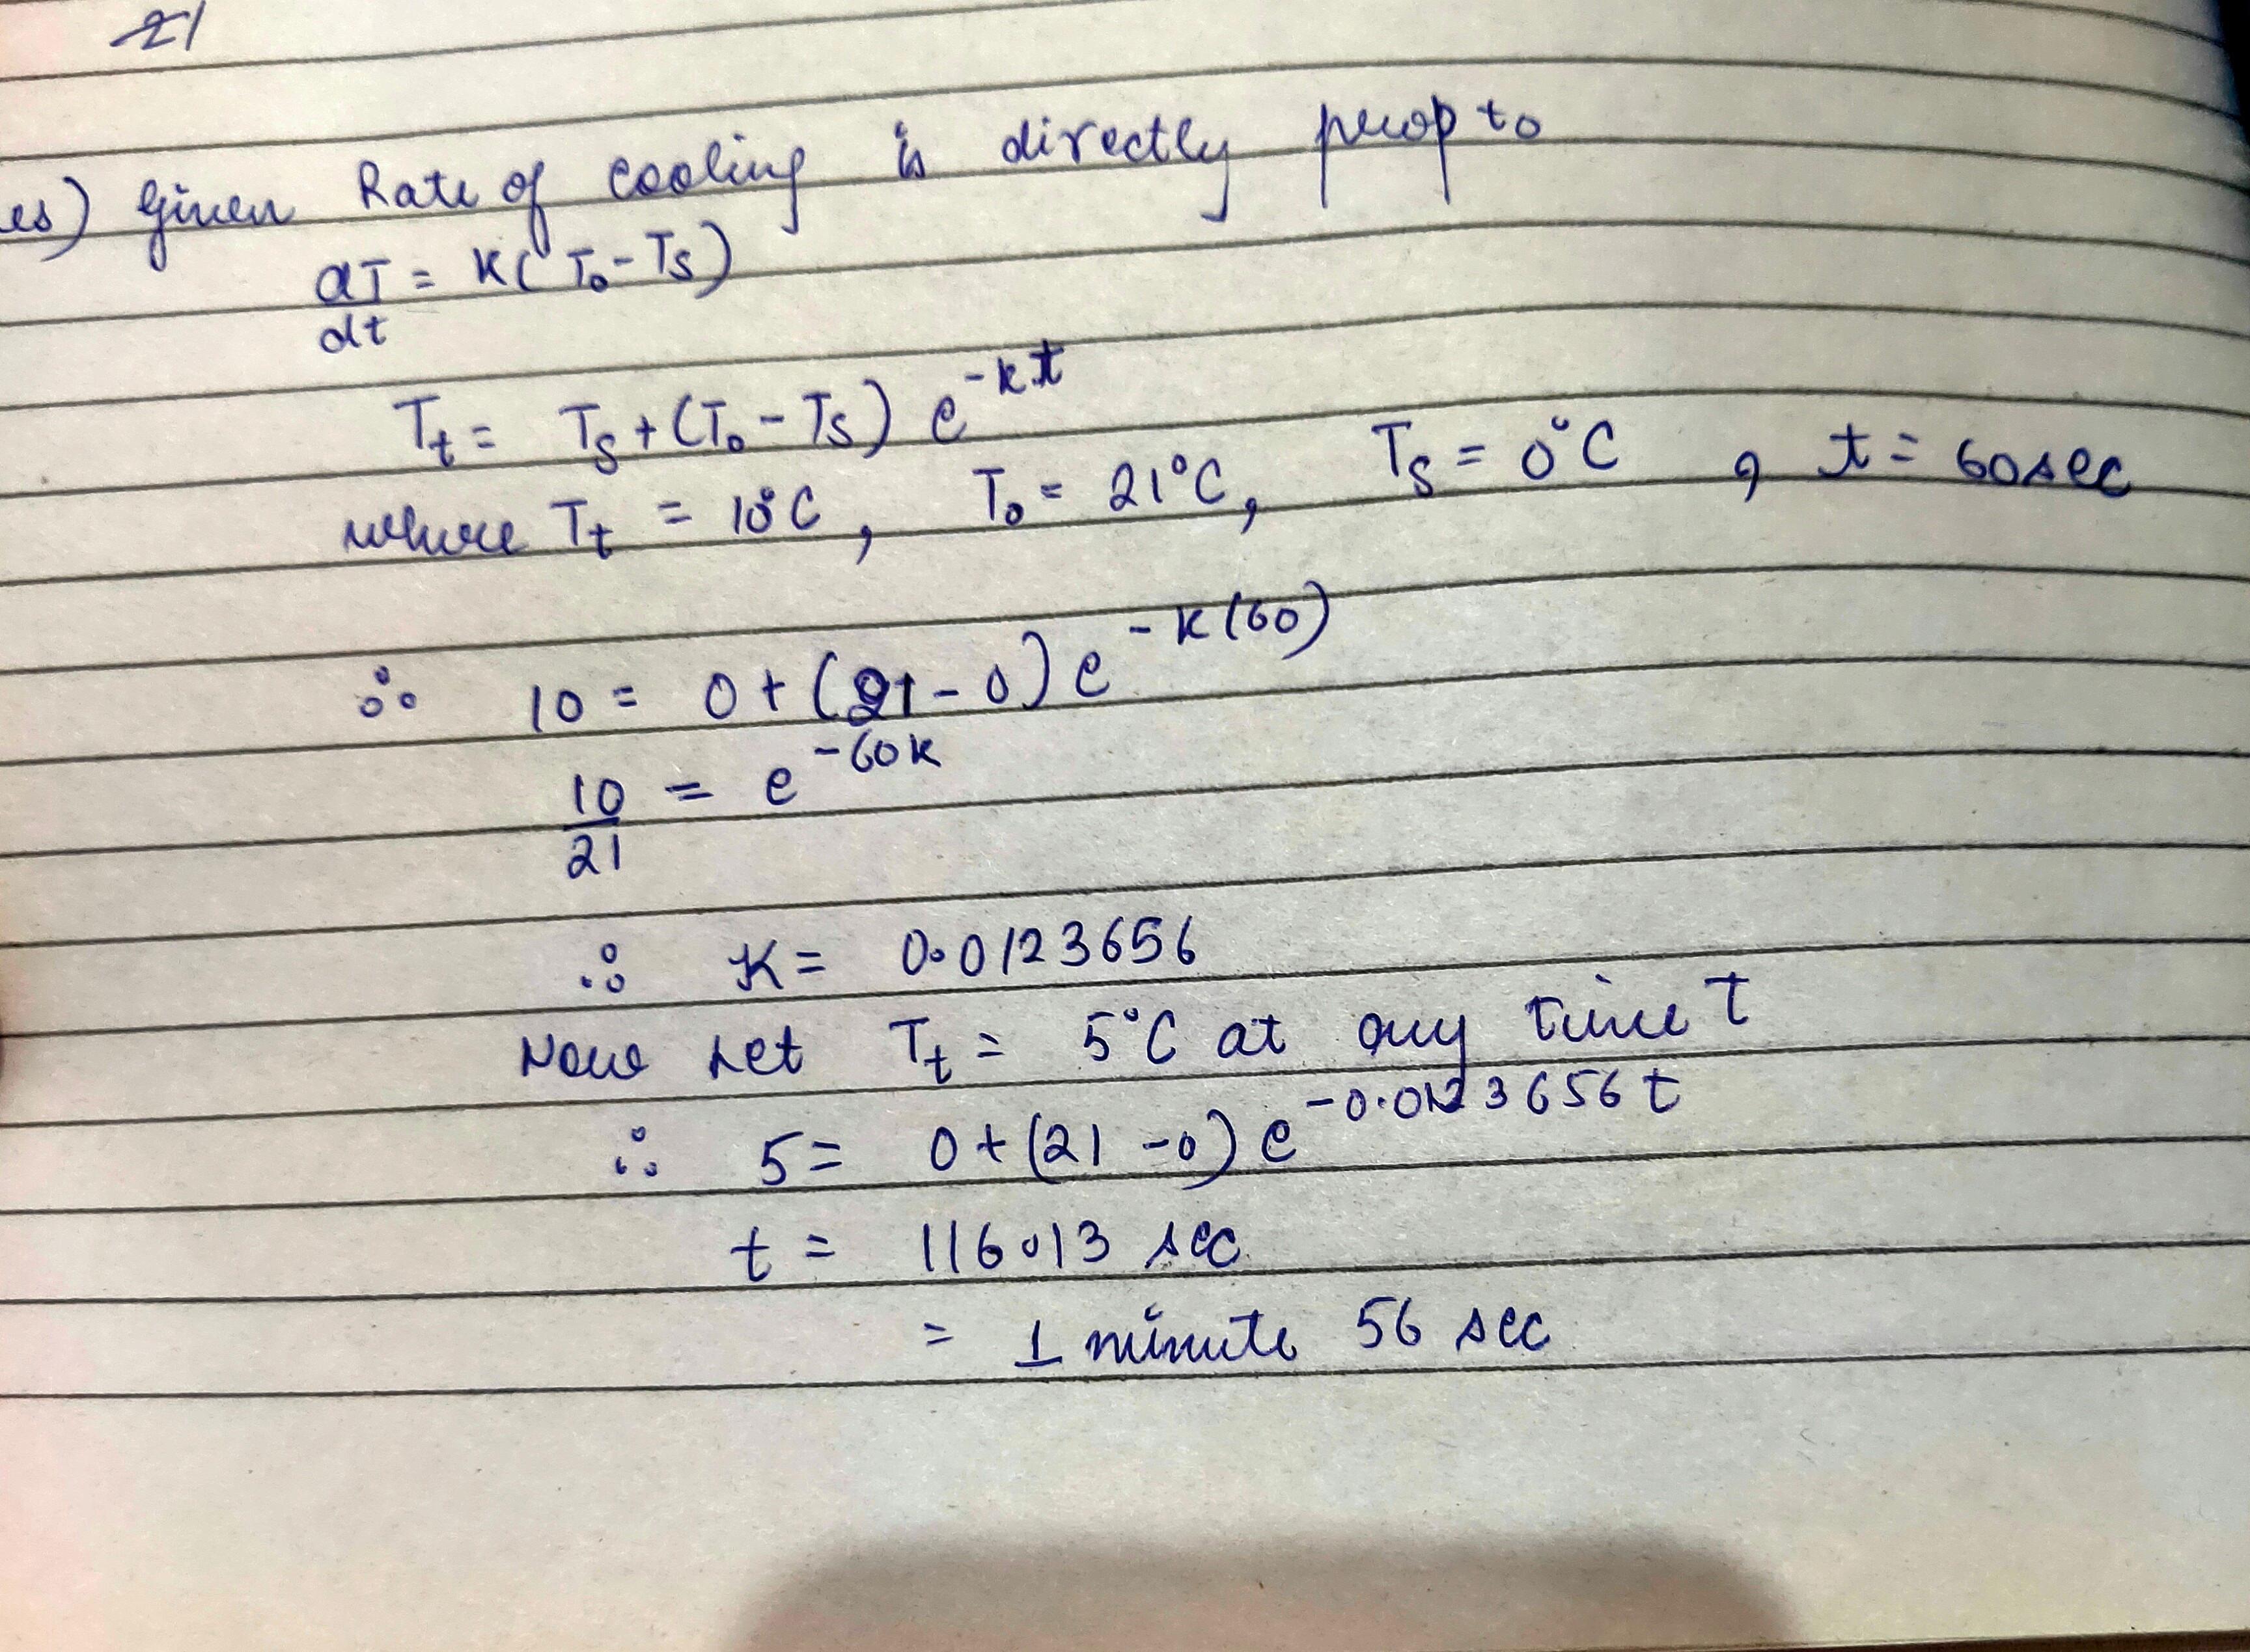 21
es) Given Rate of cooling is directly prop to
dT/dt = K(T₀ - Ts)
Tt = Ts + (T₀ - Ts) e^-kt
where Tt = 10°C, T₀ = 21°C, Ts = 0°C, t = 60sec
∴ 10 = 0 + (21 - 0) e^-K(60)
10/21 = e^-60K
∴ K = 0.0123656
Now Let Tt = 5°C at any time t
∴ 5 = 0 + (21 - 0) e^-0.0123656t
t = 116.13 sec
= 1 minute 56 sec